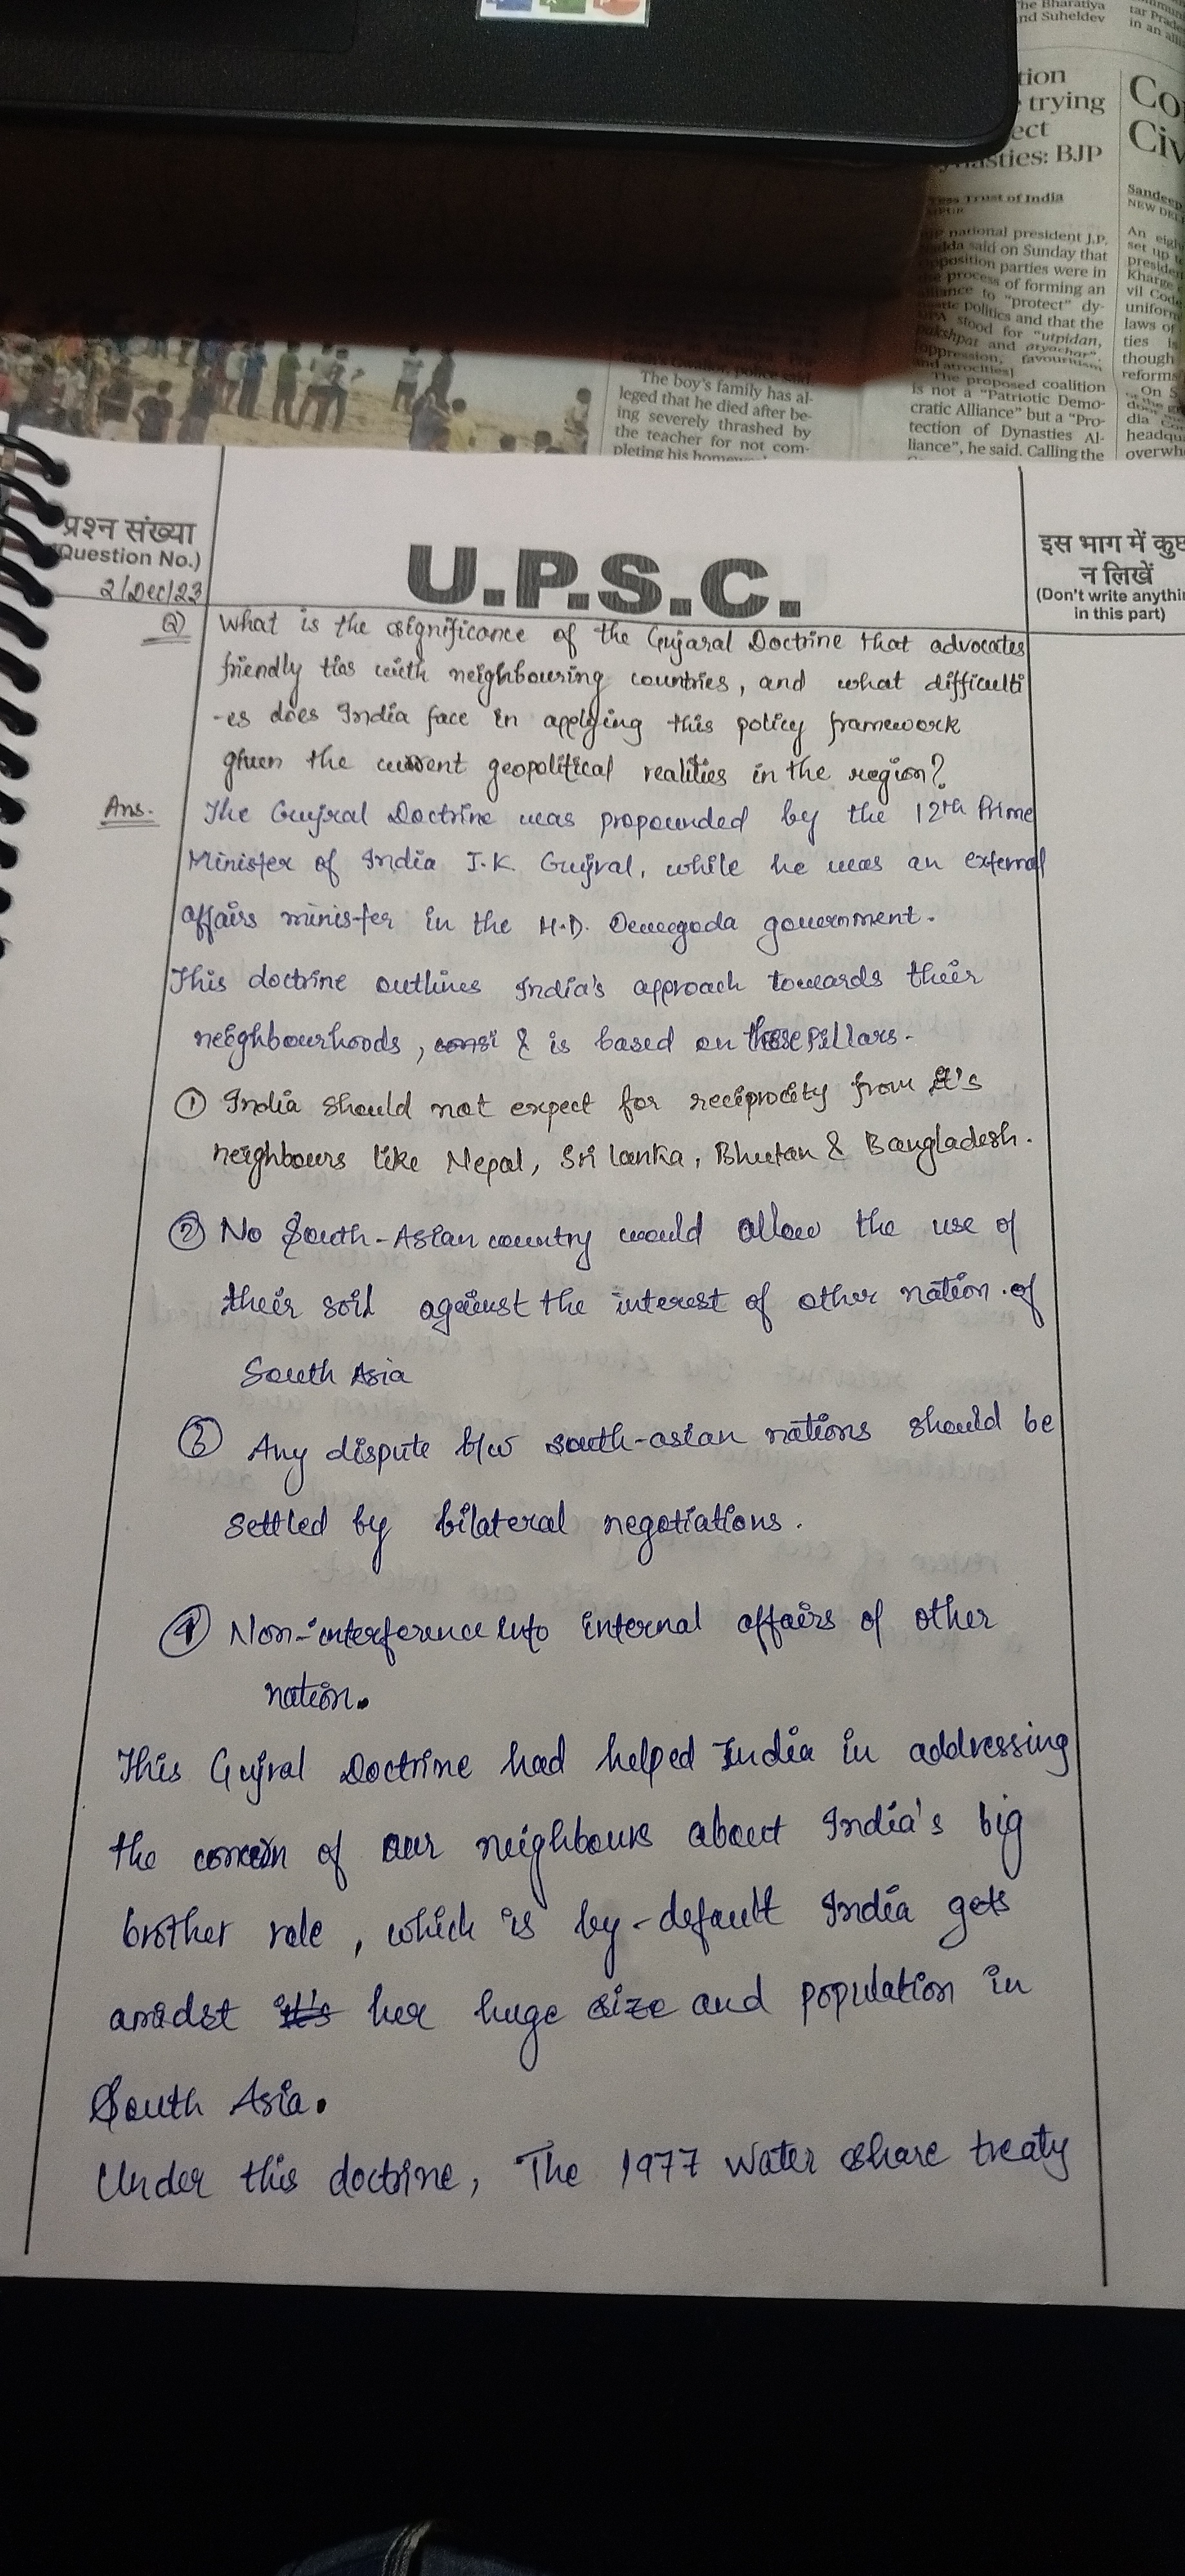 he Bharatiya
nd Suheldev
tar Prade
in an alli
tion
trying
ect
sties: BJP
Co
Civ
Press Trust of India
national president J.P.
Nadda said on Sunday that
opposition parties were in
the process of forming an
alliance to "protect" dy-
nastic politics and that the
UPA stood for "utpidan,
pakshpat and atyachar".
(oppression, favouritism
and atrocities)
The proposed coalition
is not a "Patriotic Demo-
cratic Alliance" but a "Pro-
tection of Dynasties Al-
liance", he said. Calling the
Sandeep
NEW DEL
An eigh
set up
presiden
Kharge
vil Code
uniform
laws of
ties
though
reforms
On S
dia
headqu
overwh
The boy's family has al-
leged that he died after be-
ing severely thrashed by
the teacher for not com-
pleting his homew
प्रश्न संख्या
(Question No.)
2/Dec/23
U.P.S.C.
इस भाग में कुछ
न लिखें
(Don't write anythin
in this part)
Q) What is the significance of the Gujaral Doctrine that advocates
friendly ties with neighbouring countries, and what difficulti
-es does India face in applying this policy framework
given the current geopolitical realities in the region?
Ans. The Gujral Doctrine was propounded by the 12th Prime
Minister of India I.K. Gujral, while he was an external
affairs minister in the H.D. Devegoda government.
This doctrine outlines India's approach towards their
neighbourhoods, consi & is based on these Pillars-
① India should not expect for reciprocity from it's
neighbours like Nepal, Sri lanka, Bhutan & Bangladesh.
② No South-Asian country would allow the use of
their soil against the interest of other nation of
South Asia
③ Any dispute b/w south-asian nations should be
settled by bilateral negotiations.
④ Non-interference into internal affairs of other
nation.
This Gujral Doctrine had helped India in addressing
the concern of our neighbours about India's big
brother role, which is by-default India gets
amidst it's her huge size and population in
South Asia.
Under this doctrine, The 1977 Water share treaty